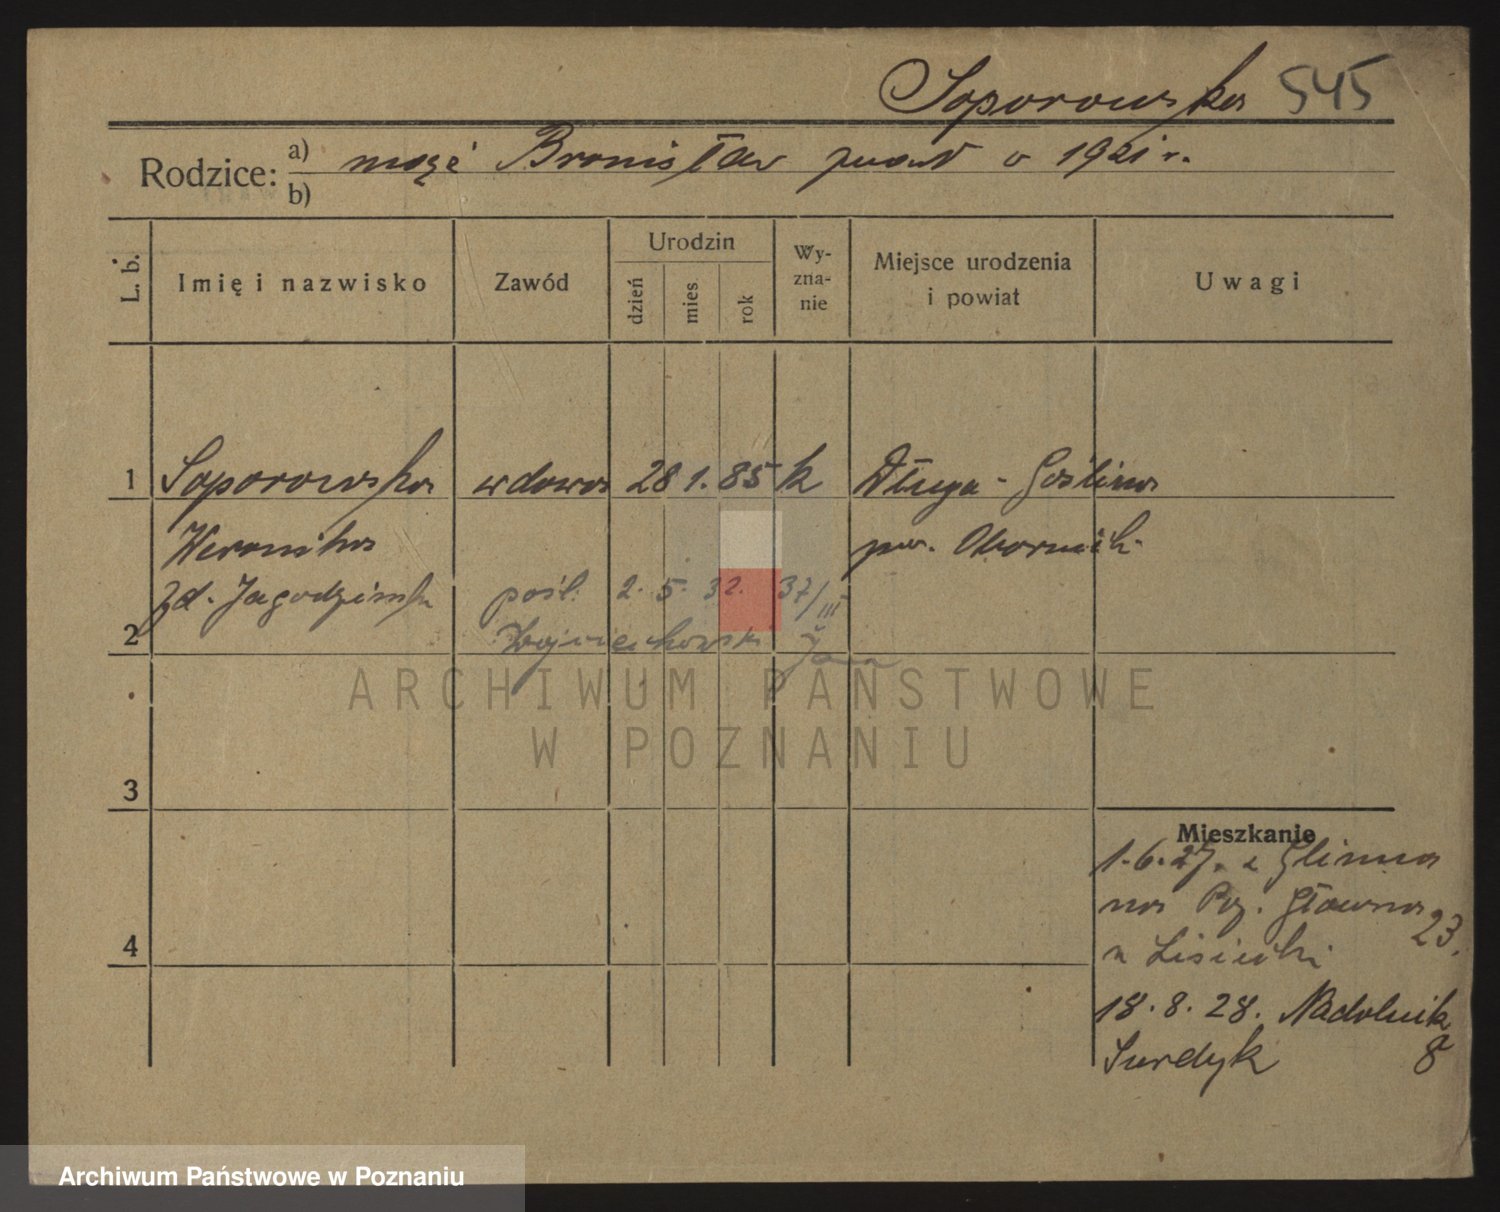 Soporowska 545
Rodzice: a) mąż Bronisław zmarł w 1921 r.
b)
L. b.
Imię i nazwisko
Zawód
Urodzin
dzień
mies
rok
Wy-
zna-
nie
Miejsce urodzenia
i powiat
Uwagi
1 Soporowska wdowa 28 1. 85 k Długa-Goślina
Weronika pow. Obornik
zd. Jagodzińska pośl. 2. 5. 32. 37/III
2 Wojciechowski Jana
ARCHIWUM PAŃSTWOWE
W POZNANIU
3
Mieszkanie
1.6.27. z Glinna
na Poz. Główna 23.
4 u Lisiecki
18.8.28. Nadolnik 8
Surdyk
Archiwum Państwowe w Poznaniu